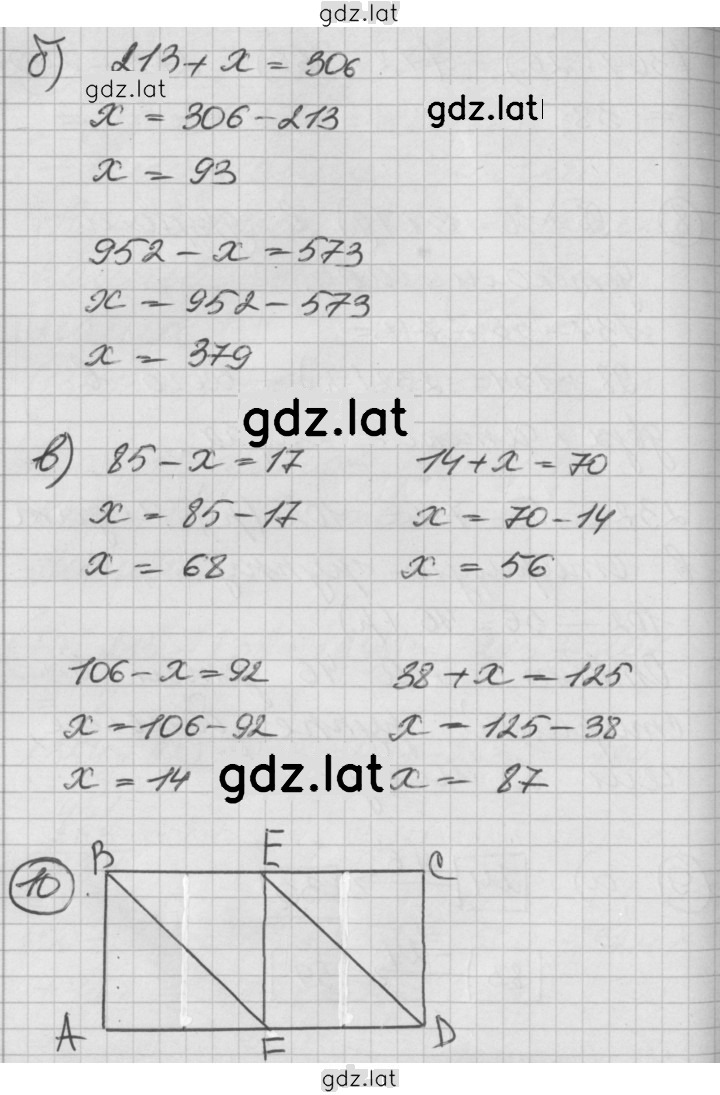 gdz.lat
б) 213 + x = 306
gdz.lat
x = 306 - 213
gdz.lat
x = 93
952 - x = 573
x = 952 - 573
x = 379
gdz.lat
в) 85 - x = 17 14 + x = 70
x = 85 - 17 x = 70 - 14
x = 68 x = 56
106 - x = 92 38 + x = 125
x = 106 - 92 x = 125 - 38
x = 14 gdz.lat x = 87
10 B E C
A F D
gdz.lat